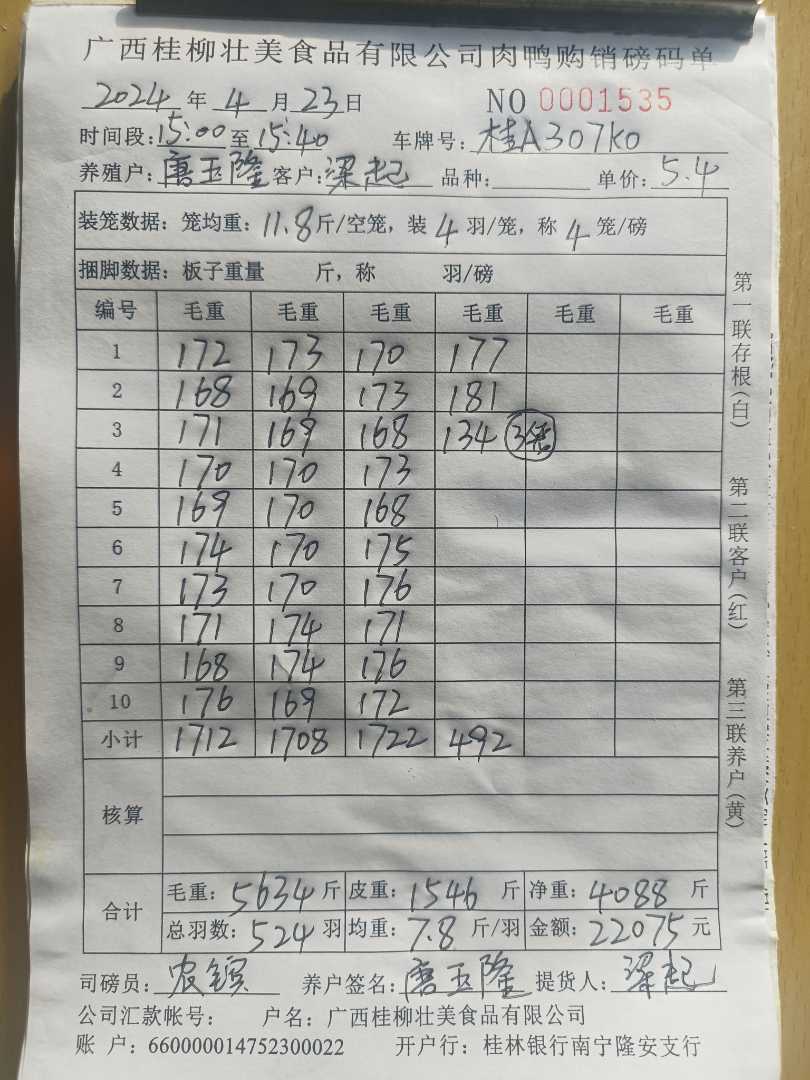 广西桂柳壮美食品有限公司肉鸭购销磅码单
2024 年 4 月 23 日 NO 0001535
时间段: 15:00 至 15:40 车牌号: 桂A307K0
养殖户: 唐玉隆 客户: 梁起 品种: 单价: 5.4
装笼数据: 笼均重: 11.8 斤/空笼, 装 4 羽/笼, 称 4 笼/磅
捆脚数据: 板子重量 斤, 称 羽/磅
编号 毛重 毛重 毛重 毛重 毛重 毛重
1 172 173 170 177
2 168 169 173 181
3 171 169 168 134 3笼
4 170 170 173
5 169 170 168
6 174 170 175
7 173 170 176
8 171 174 171
9 168 174 176
10 176 169 172
小计 1712 1708 1722 492
核算
合计 毛重: 5634 斤 皮重: 1546 斤 净重: 4088 斤
总羽数: 524 羽 均重: 7.8 斤/羽 金额: 22075 元
司磅员: 农 养户签名: 唐玉隆 提货人: 梁起
公司汇款帐号: 户名: 广西桂柳壮美食品有限公司
账 户: 660000014752300022 开户行: 桂林银行南宁隆安支行
第一联存根(白)
第二联客户(红)
第三联养户(黄)